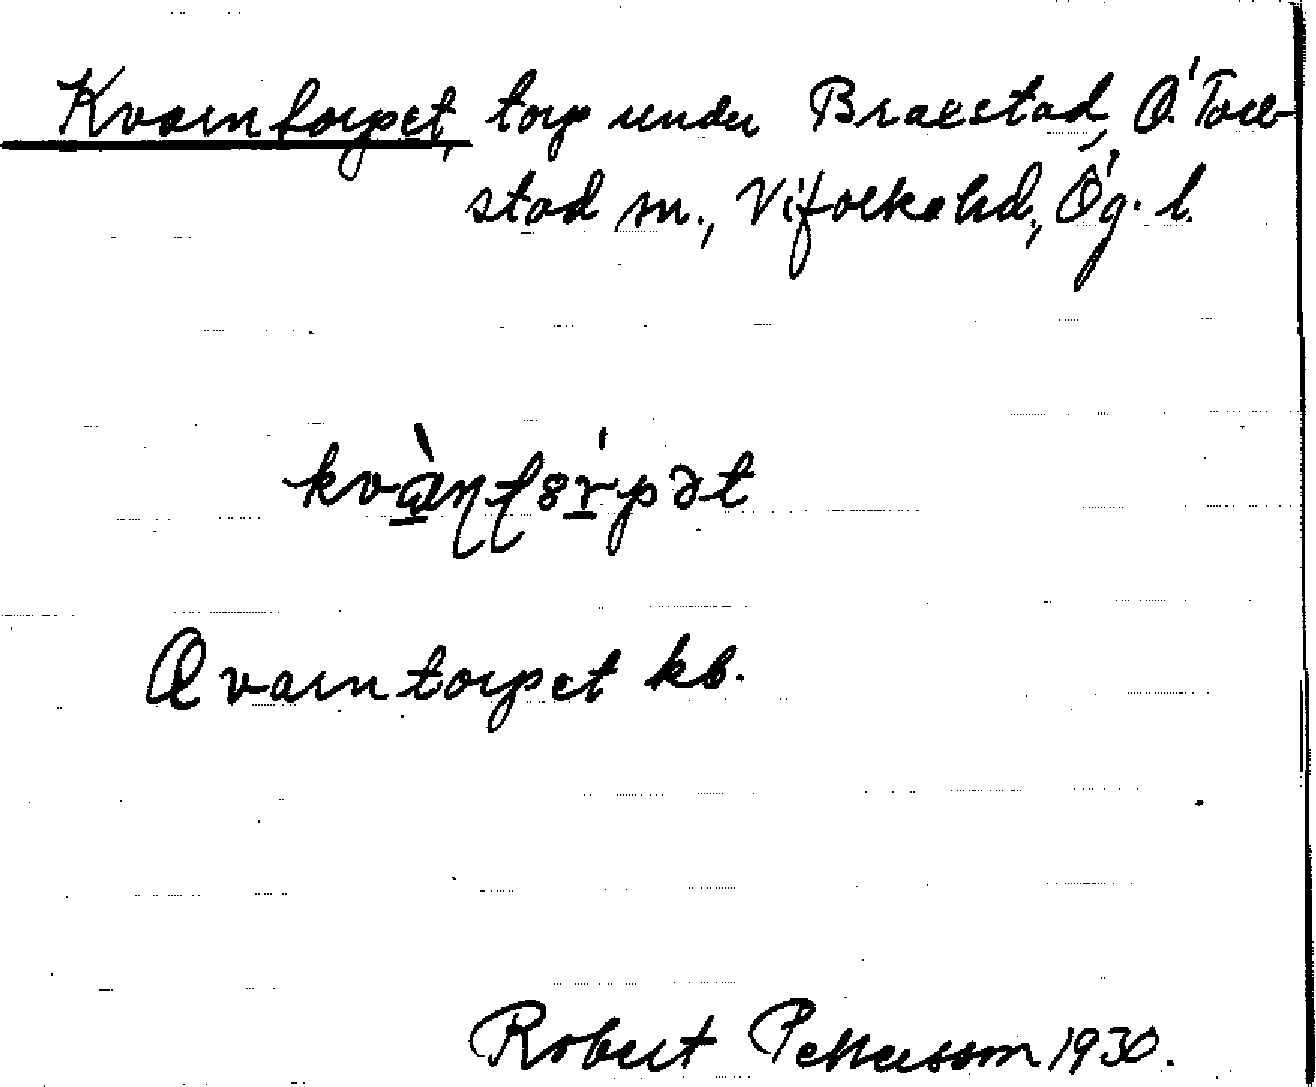 Kvarntorpet, torp under Braestad, Ö. Tol-
stad sn., Vifolka hd, Ög. l.
kvàɳʈɵrpət
Qvarntorpet kb.
Robert Pettersson 1930.